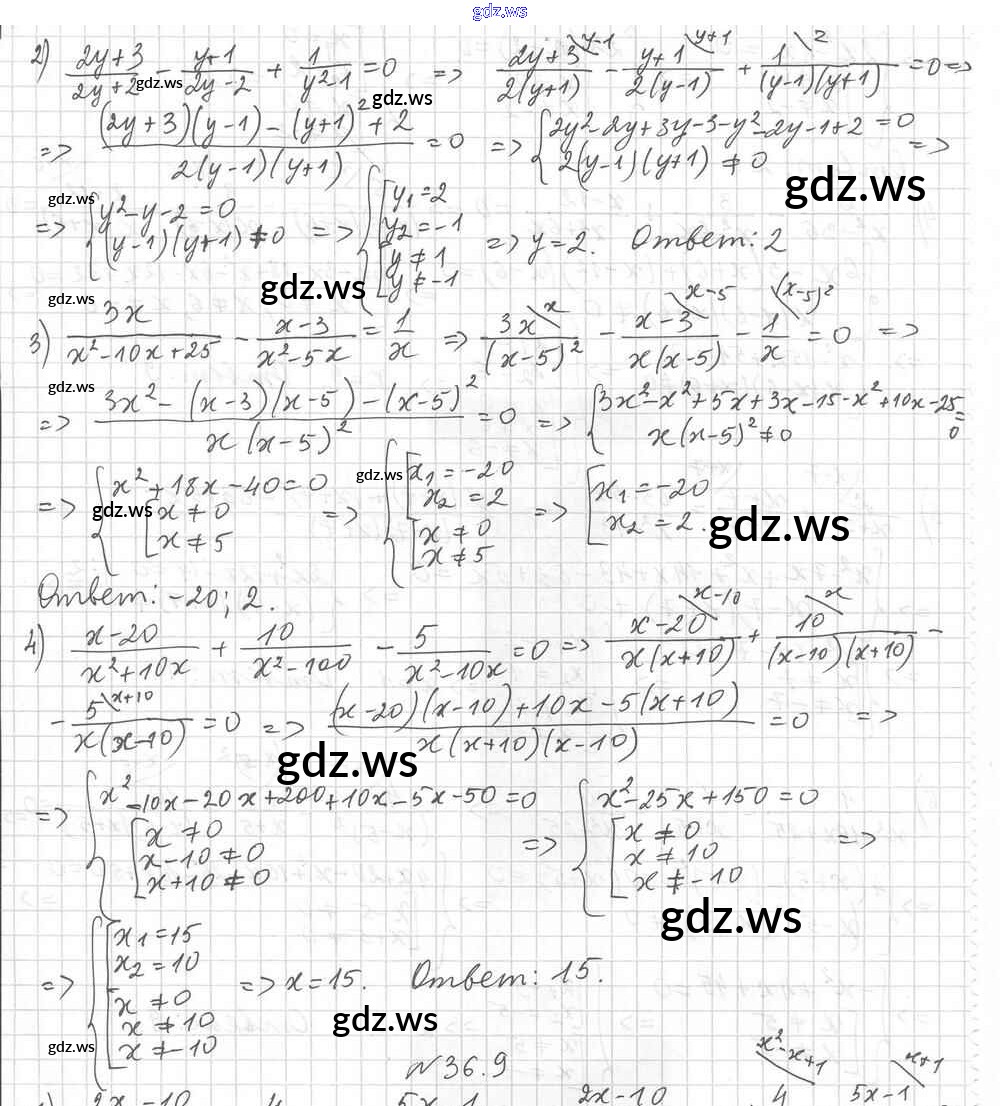 gdz.ws
2) (2y+3)/(2y+2) - (y+1)/(2y-2) + 1/(y²-1) = 0 => (2y+3)^{\y-1}/(2(y+1)) - (y+1)^{\y+1}/(2(y-1)) + 1^{\2}/((y-1)(y+1)) = 0 =>
gdz.ws gdz.ws
=> ((2y+3)(y-1) - (y+1)² + 2)/(2(y-1)(y+1)) = 0 => { 2y²-2y+3y-3-y²-2y-1+2 = 0 =>
2(y-1)(y+1) ≠ 0
gdz.ws gdz.ws
=> { y²-y-2 = 0; (y-1)(y+1) ≠ 0 => { [ y₁=2; y₂=-1; [ y≠1; y≠-1 => y=2. Ответ: 2
gdz.ws gdz.ws
3) 3x/(x²-10x+25) - (x-3)/(x²-5x) = 1/x => 3x^{\x}/(x-5)² - (x-3)^{\x-5}/(x(x-5)) - 1^{\(x-5)²}/x = 0 =>
gdz.ws
=> (3x² - (x-3)(x-5) - (x-5)²)/(x(x-5)²) = 0 => { 3x²-x²+5x+3x-15-x²+10x-25 = 0
x(x-5)² ≠ 0
gdz.ws gdz.ws gdz.ws
=> { x²+18x-40=0; [ x≠0; x≠5 => { [ x₁=-20; x₂=2; [ x≠0; x≠5 => [ x₁=-20; x₂=2.
Ответ: -20; 2.
4) (x-20)/(x²+10x) + 10/(x²-100) - 5/(x²-10x) = 0 => (x-20)^{\x-10}/(x(x+10)) + 10^{\x}/((x-10)(x+10)) -
- 5^{\x+10}/(x(x-10)) = 0 => ((x-20)(x-10)+10x-5(x+10))/(x(x+10)(x-10)) = 0 =>
gdz.ws
=> { x²-10x-20x+200+10x-5x-50=0; [ x≠0; x-10≠0; x+10≠0 => { x²-25x+150=0; [ x≠0; x≠10; x≠-10 =>
gdz.ws gdz.ws
=> { [ x₁=15; x₂=10; [ x≠0; x≠10; x≠-10 => x=15. Ответ: 15.
gdz.ws gdz.ws
№36.9
x²-x+1 x+1
2x-10 4 5x-1 2x-10 4 5x-1